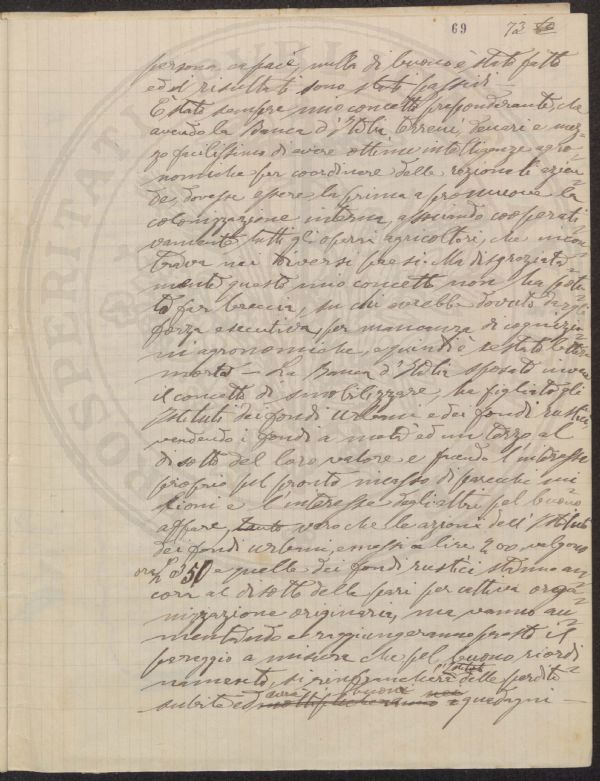 69 73
persona capace, nulla di buono è stato fatto
ed i risultati sono stati passivi
È stato sempre mio concetto preponderante, che
avendo la Banca d'Italia terreni, denari e mez-
zo facilissimo di avere ottime intelligenze agro-
nomiche per coordinare delle razionali azien-
de, dovesse essere la prima a promuovere la
colonizzazione interna, associando cooperati-
vamente, tutti gli operai agricoltori, che incon-
trava nei diversi paesi. Ma disgraziata-
mente questo mio concetto non ha potu-
to far breccia, su chi avrebbe dovuto dargli
forza esecutiva, per mancanza di cognizio-
ni agronomiche, e quindi è restato lettera
morta — La Banca d'Italia sposato invece
il concetto di smobilizzare, ha figliato gli
Istituti dei fondi Urbani e dei fondi rustici
vendendo i fondi a metà ed un terzo al
di sotto del loro valore e facendo l'interesse
proprio pel pronto incasso di parecchi mi-
lioni e l'interesse degli altri pel buono
affare, tanto vero che le azioni dell'Istituto
dei fondi urbani, emessi a lire 200, valgono
ora 350 e quelle dei fondi rustici stanno an-
cora al disotto della pari per cattiva orga-
nizzazione originaria, ma vanno au-
mentando e raggiungeranno presto il
pareggio a misura che pel buono riordi-
namento, si rinfrancherà delle perdite
subite ed avrà buoni guadagni —